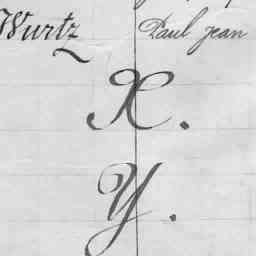 Wurtz Paul Jean
X.
Y.